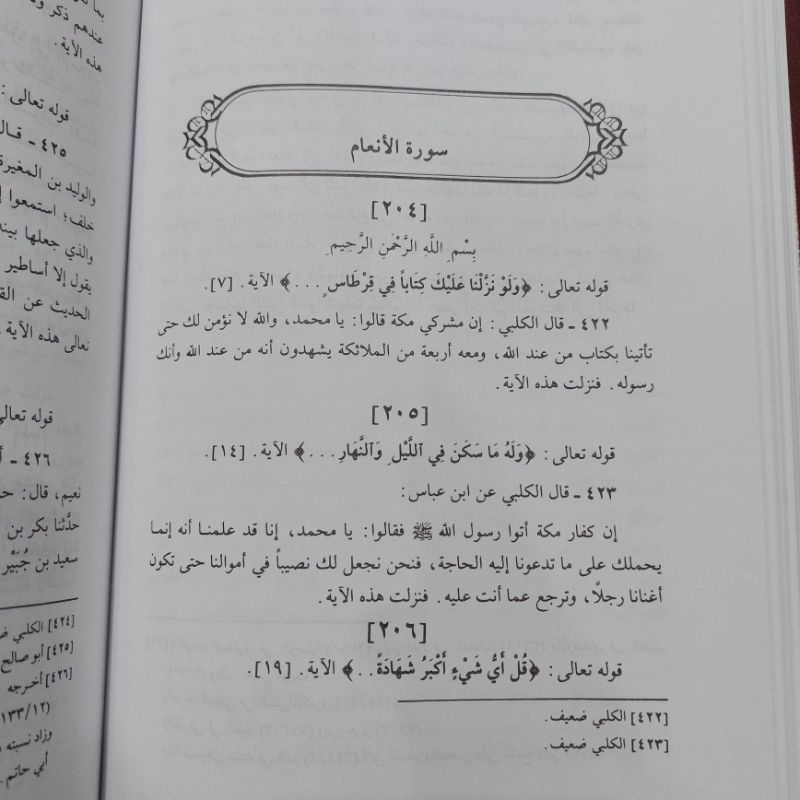 سورة الأنعام
[٢٠٤]
بِسْمِ اللَّهِ الرَّحْمَٰنِ الرَّحِيمِ
قوله تعالى: ﴿وَلَوْ نَزَّلْنَا عَلَيْكَ كِتَاباً فِي قِرْطَاسٍ ...﴾ الآية. [٧].
٤٢٢ ـ قال الكلبي: إن مشركي مكة قالوا: يا محمد، والله لا نؤمن لك حتى
تأتينا بكتاب من عند الله، ومعه أربعة من الملائكة يشهدون أنه من عند الله وأنك
رسوله. فنزلت هذه الآية.
[٢٠٥]
قوله تعالى: ﴿وَلَهُ مَا سَكَنَ فِي اللَّيْلِ وَالنَّهَارِ ...﴾ الآية. [١٤].
٤٢٣ ـ قال الكلبي عن ابن عباس:
إن كفار مكة أتوا رسول الله ﷺ فقالوا: يا محمد، إنا قد علمنا أنه إنما
يحملك على ما تدعونا إليه الحاجة، فنحن نجعل لك نصيباً في أموالنا حتى تكون
أغنانا رجلاً، وترجع عما أنت عليه. فنزلت هذه الآية.
[٢٠٦]
قوله تعالى: ﴿قُلْ أَيُّ شَيْءٍ أَكْبَرُ شَهَادَةً ..﴾ الآية. [١٩].
[٤٢٢] الكلبي ضعيف.
[٤٢٣] الكلبي ضعيف.
عندهم ذكر
هذه الآية.
قوله تعالى:
٤٢٥ ـ قال
والوليد بن المغيرة
خلف؛ استمعوا
والذي جعلها بينه
يقول إلا أساطير
الحديث عن
تعالى هذه الآية.
قوله تعالى
٤٢٦ ـ
نعيم، قال:
حدَّثنا بكر بن
سعيد بن جُبَيْر
[٤٢٤] الكلبي
[٤٢٥] أبو صالح
[٤٢٦] أخرجه
(١٢/١٣٣
وزاد نسبته
أبي حاتم.